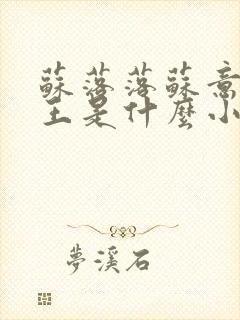 蘇落落蘇意
主是什麼小
夢溪石